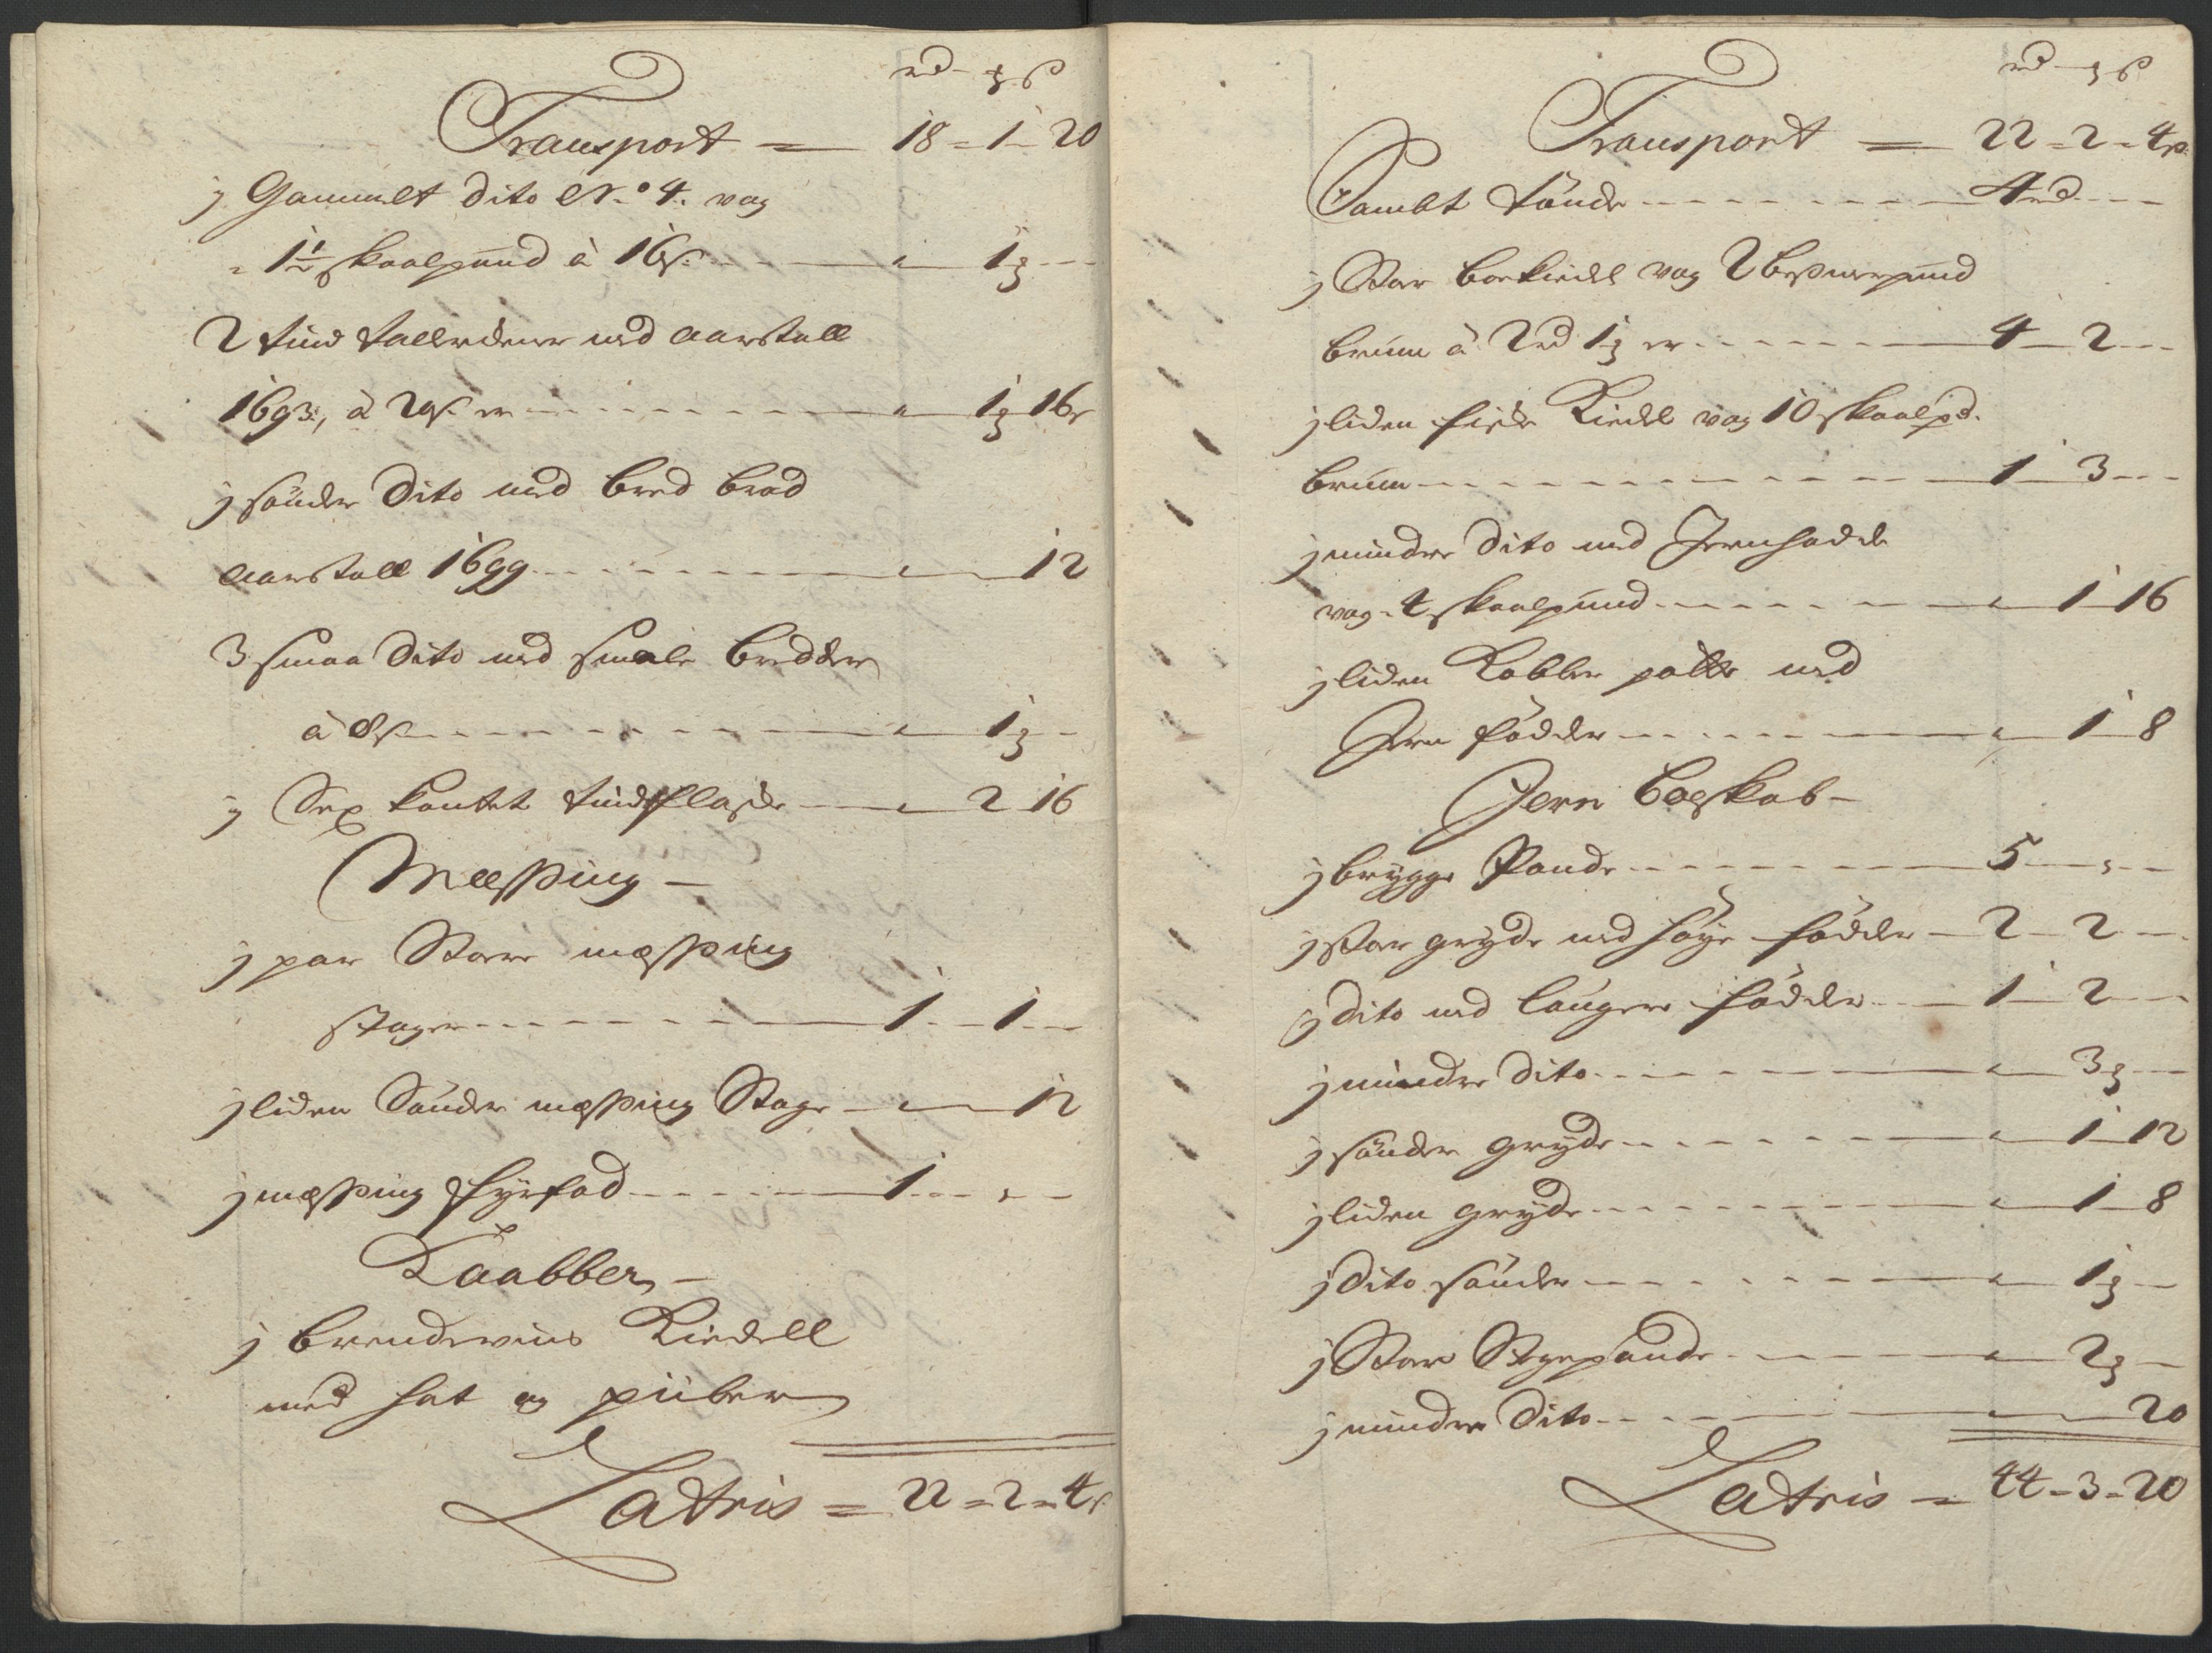 rd - ʒ ß
Transport = 18 - 1 - 20
j Gammelt dito N.º 4. vog
1 1/2 skaalpund à 16 ß. - 1 ʒ -
2 tind tallerkener med aarstall
1693, à 20 ß er - 1 ʒ 16 ß
j sönder dito med bred brad
aarstall 1699 - 12
3 smaa dito med smale bredder
à 8 ß - 1 ʒ -
j Sex kantet tindflaske - 2 16
Messing -
j par Store messing
stager - 1 - 1 -
j liden Sönder messing Stage - 12
j messing fyrfad - 1 - -
Kaabber -
j brendevins Kiedell
med hat og piiber
Latris = 22 = 2 = 4 ß
rd - ʒ ß
Transport = 22 - 2 - 4 ß
Sambt tönde - 4 rd -
j Stor Kiedel vog 2 bismerpund
bruun à 2 rd 1 ʒ er - 4 - 2 -
j liden fiske Kiedel vog 10 skaalpd.
bruun - 1 - 3 -
j mindre dito med Jernhadel
vog 4 skaalpund - 1 16
j liden Kobber potte med
Jern födder - 1 8
Jern boeskab -
j brygge Pande - 5 - -
j stor gryde med höye födder - 2 - 2 -
j dito med laugere födder - 1 - 2 -
j mindre dito - 3 ʒ -
j sönder gryde - 1 12
j liden gryde - 1 8
j dito sönder - 1 ʒ -
j Stor Stegepande - 2 ʒ -
j mindre dito - 20
Latris = 44 - 3 - 20